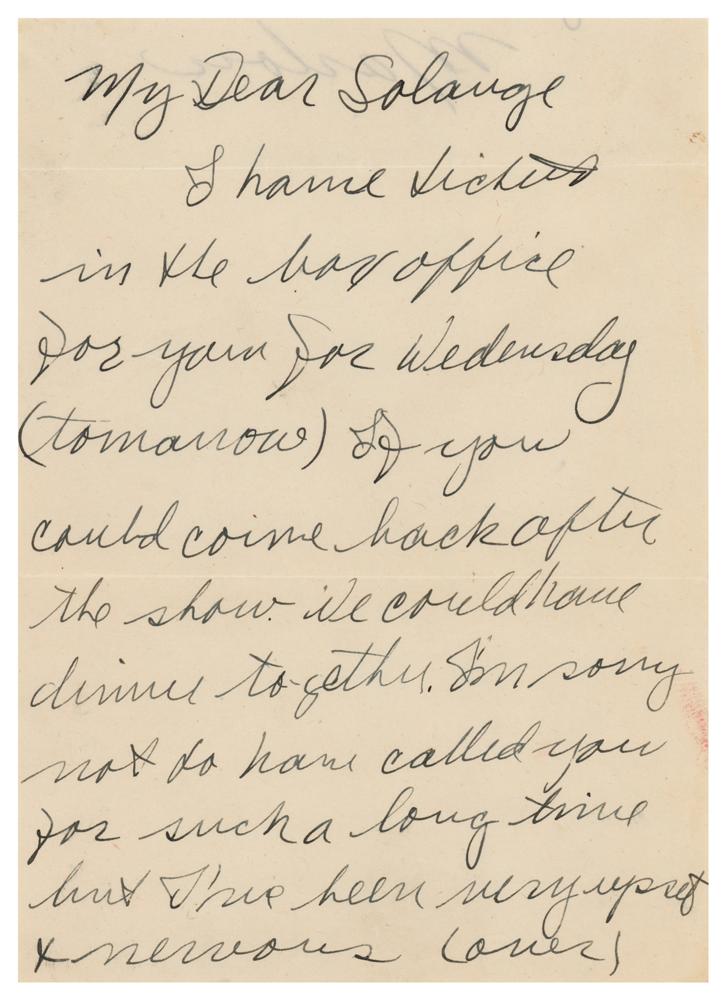 My Dear Solange
I have tickets
in the box office
for you for Wedensday
(tomarrow) If you
could come back after
the show. We could have
dinner together. I'm sorry
not do have called you
for such a long time
but I've been very upset
+ nervous (over)